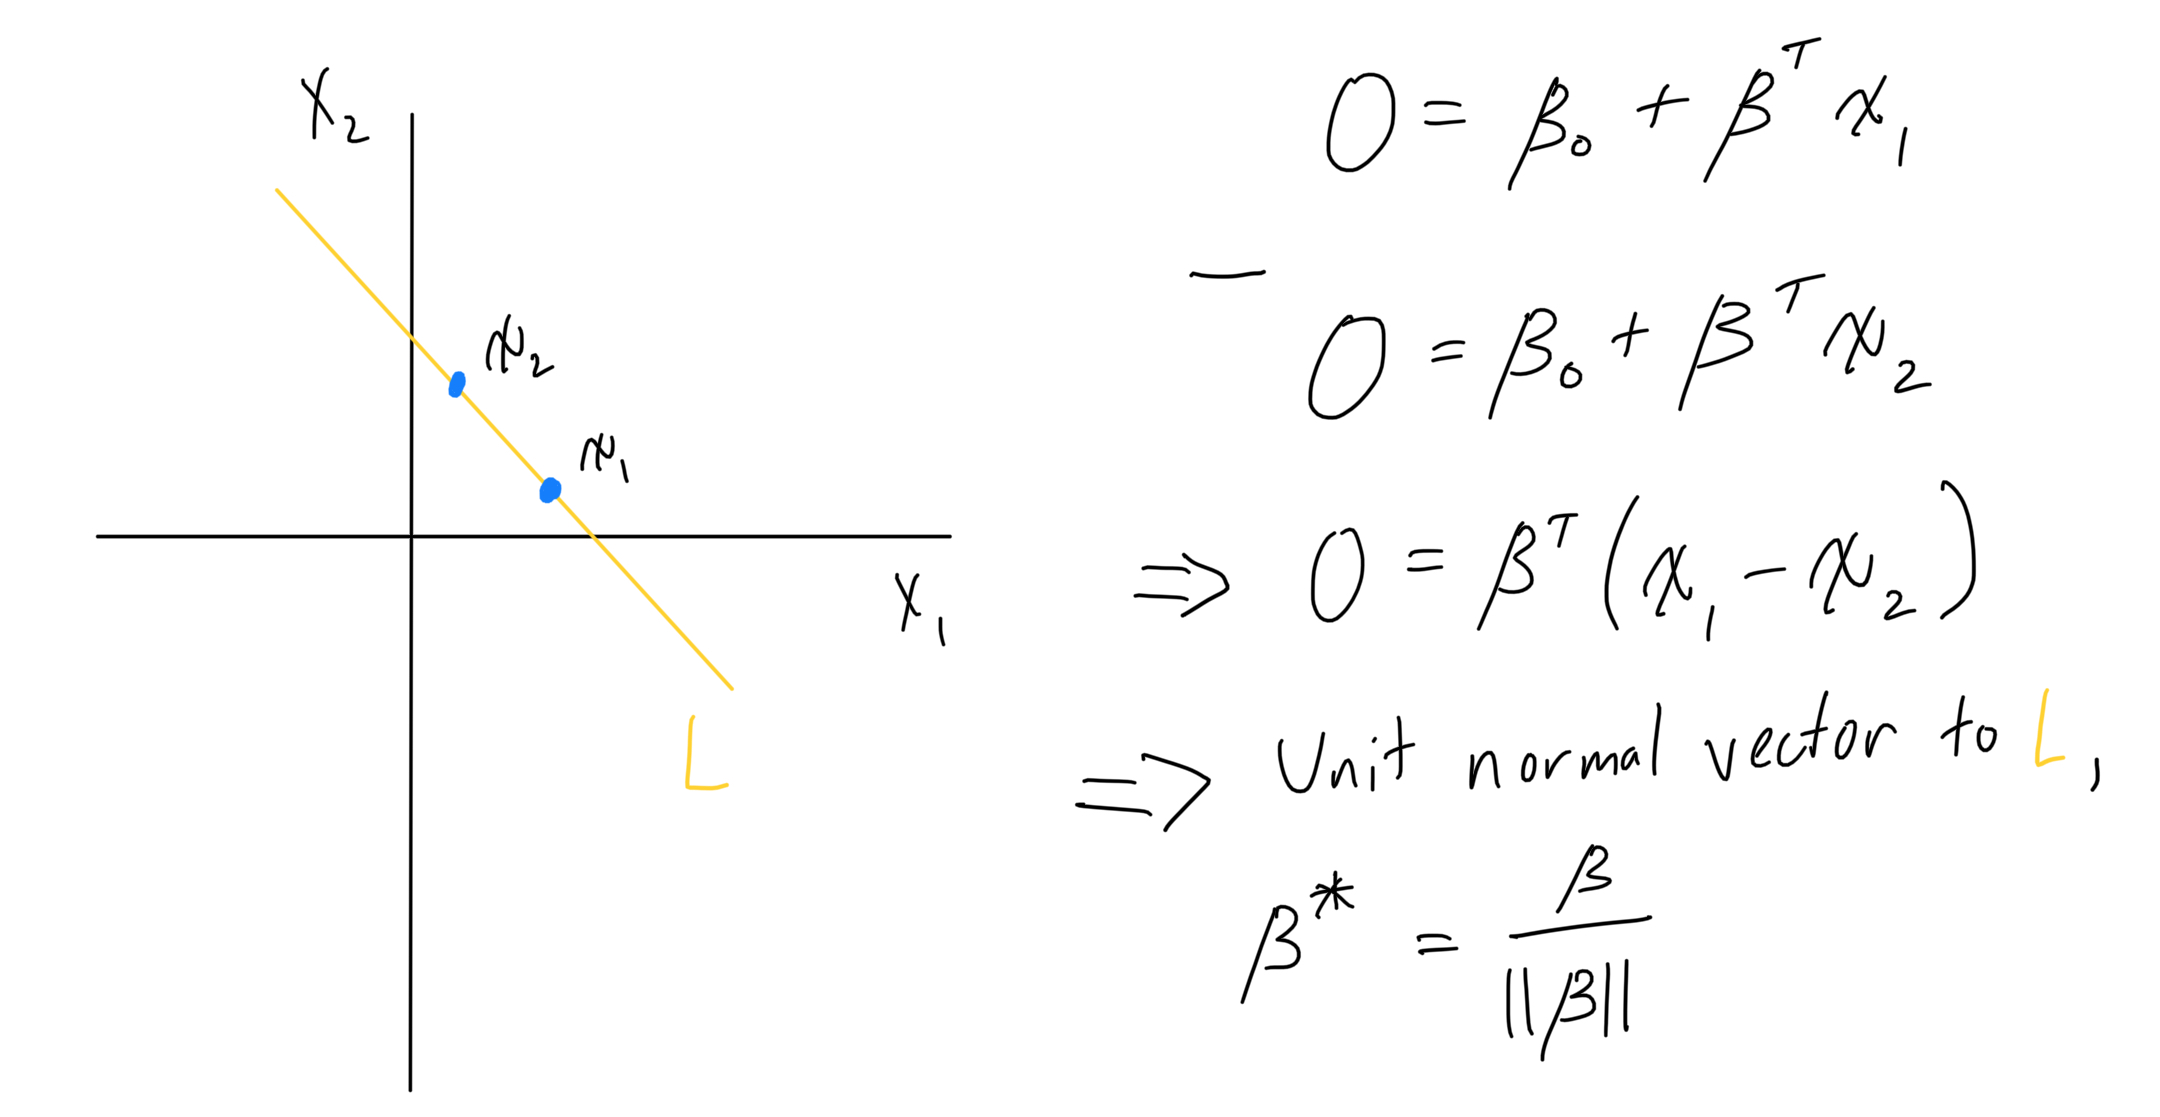 X₂
x₂
x₁
X₁
L
0 = β₀ + βᵀ x₁
−
0 = β₀ + βᵀ x₂
⇒ 0 = βᵀ (x₁ − x₂)
⇒ Unit normal vector to L,
β* = β / ||β||